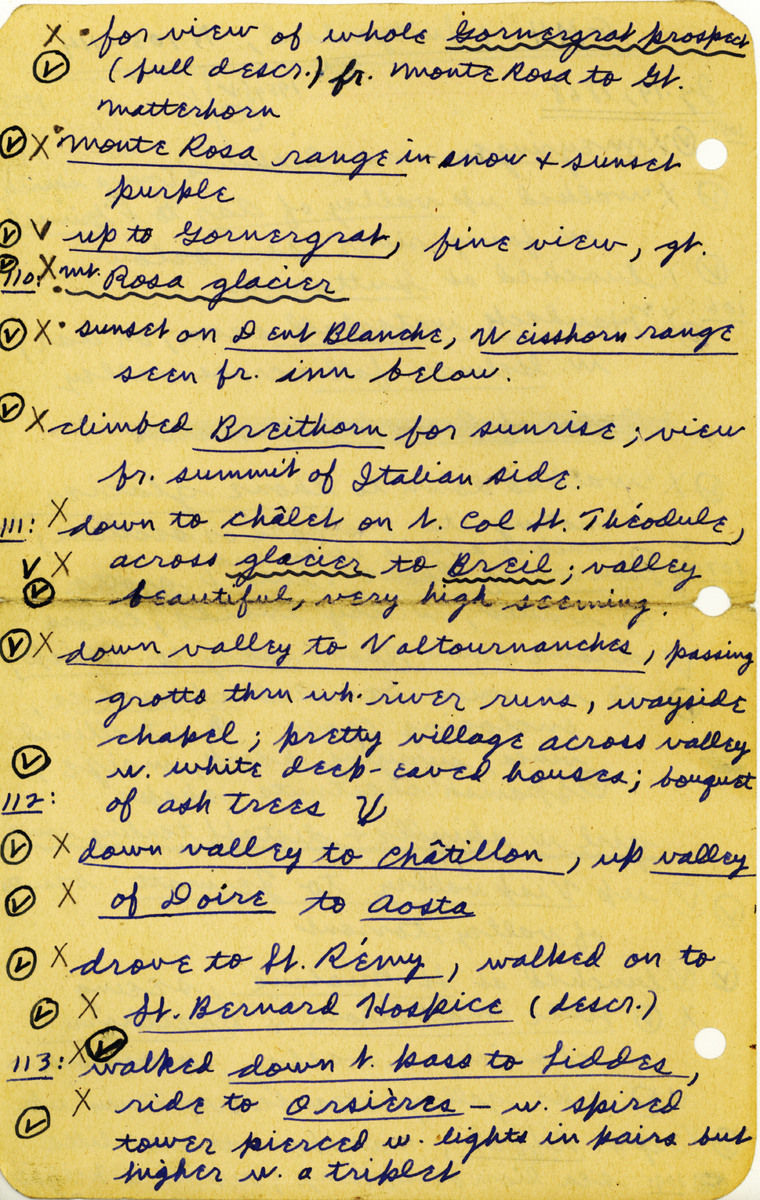 X • for view of whole Gornergrat prospect
✓ (full descr.) fr. Monte Rosa to Gt.
Matterhorn
✓ X • Monte Rosa range in snow & sunset
purple
✓ ✓ up to Gornergrat, fine view, gt.
✓ 110: X • mt. Rosa glacier
✓ X • sunset on Dent Blanche, Weisshorn range
seen fr. inn below.
✓ X climbed Breithorn for sunrise; view
fr. summit of Italian side.
111: X down to châlet on t. Col St. Théodule,
✓ X across glacier to Breil; valley
✓ beautiful, very high seeming.
✓ X down valley to Valtournanches, passing
grotto thru wh. river runs, wayside
chapel; pretty village across valley
✓ w. white deep-eaved houses; bouquet
112: of ash trees
✓ X down valley to Châtillon, up valley
✓ X of Doire to Aosta
✓ X drove to St. Rémy, walked on to
✓ X St. Bernard Hospice (descr.)
113: X ✓ walked down t. pass to Liddes,
✓ X ride to Orsières – w. spired
tower pierced w. lights in pairs but
higher w. a triplet